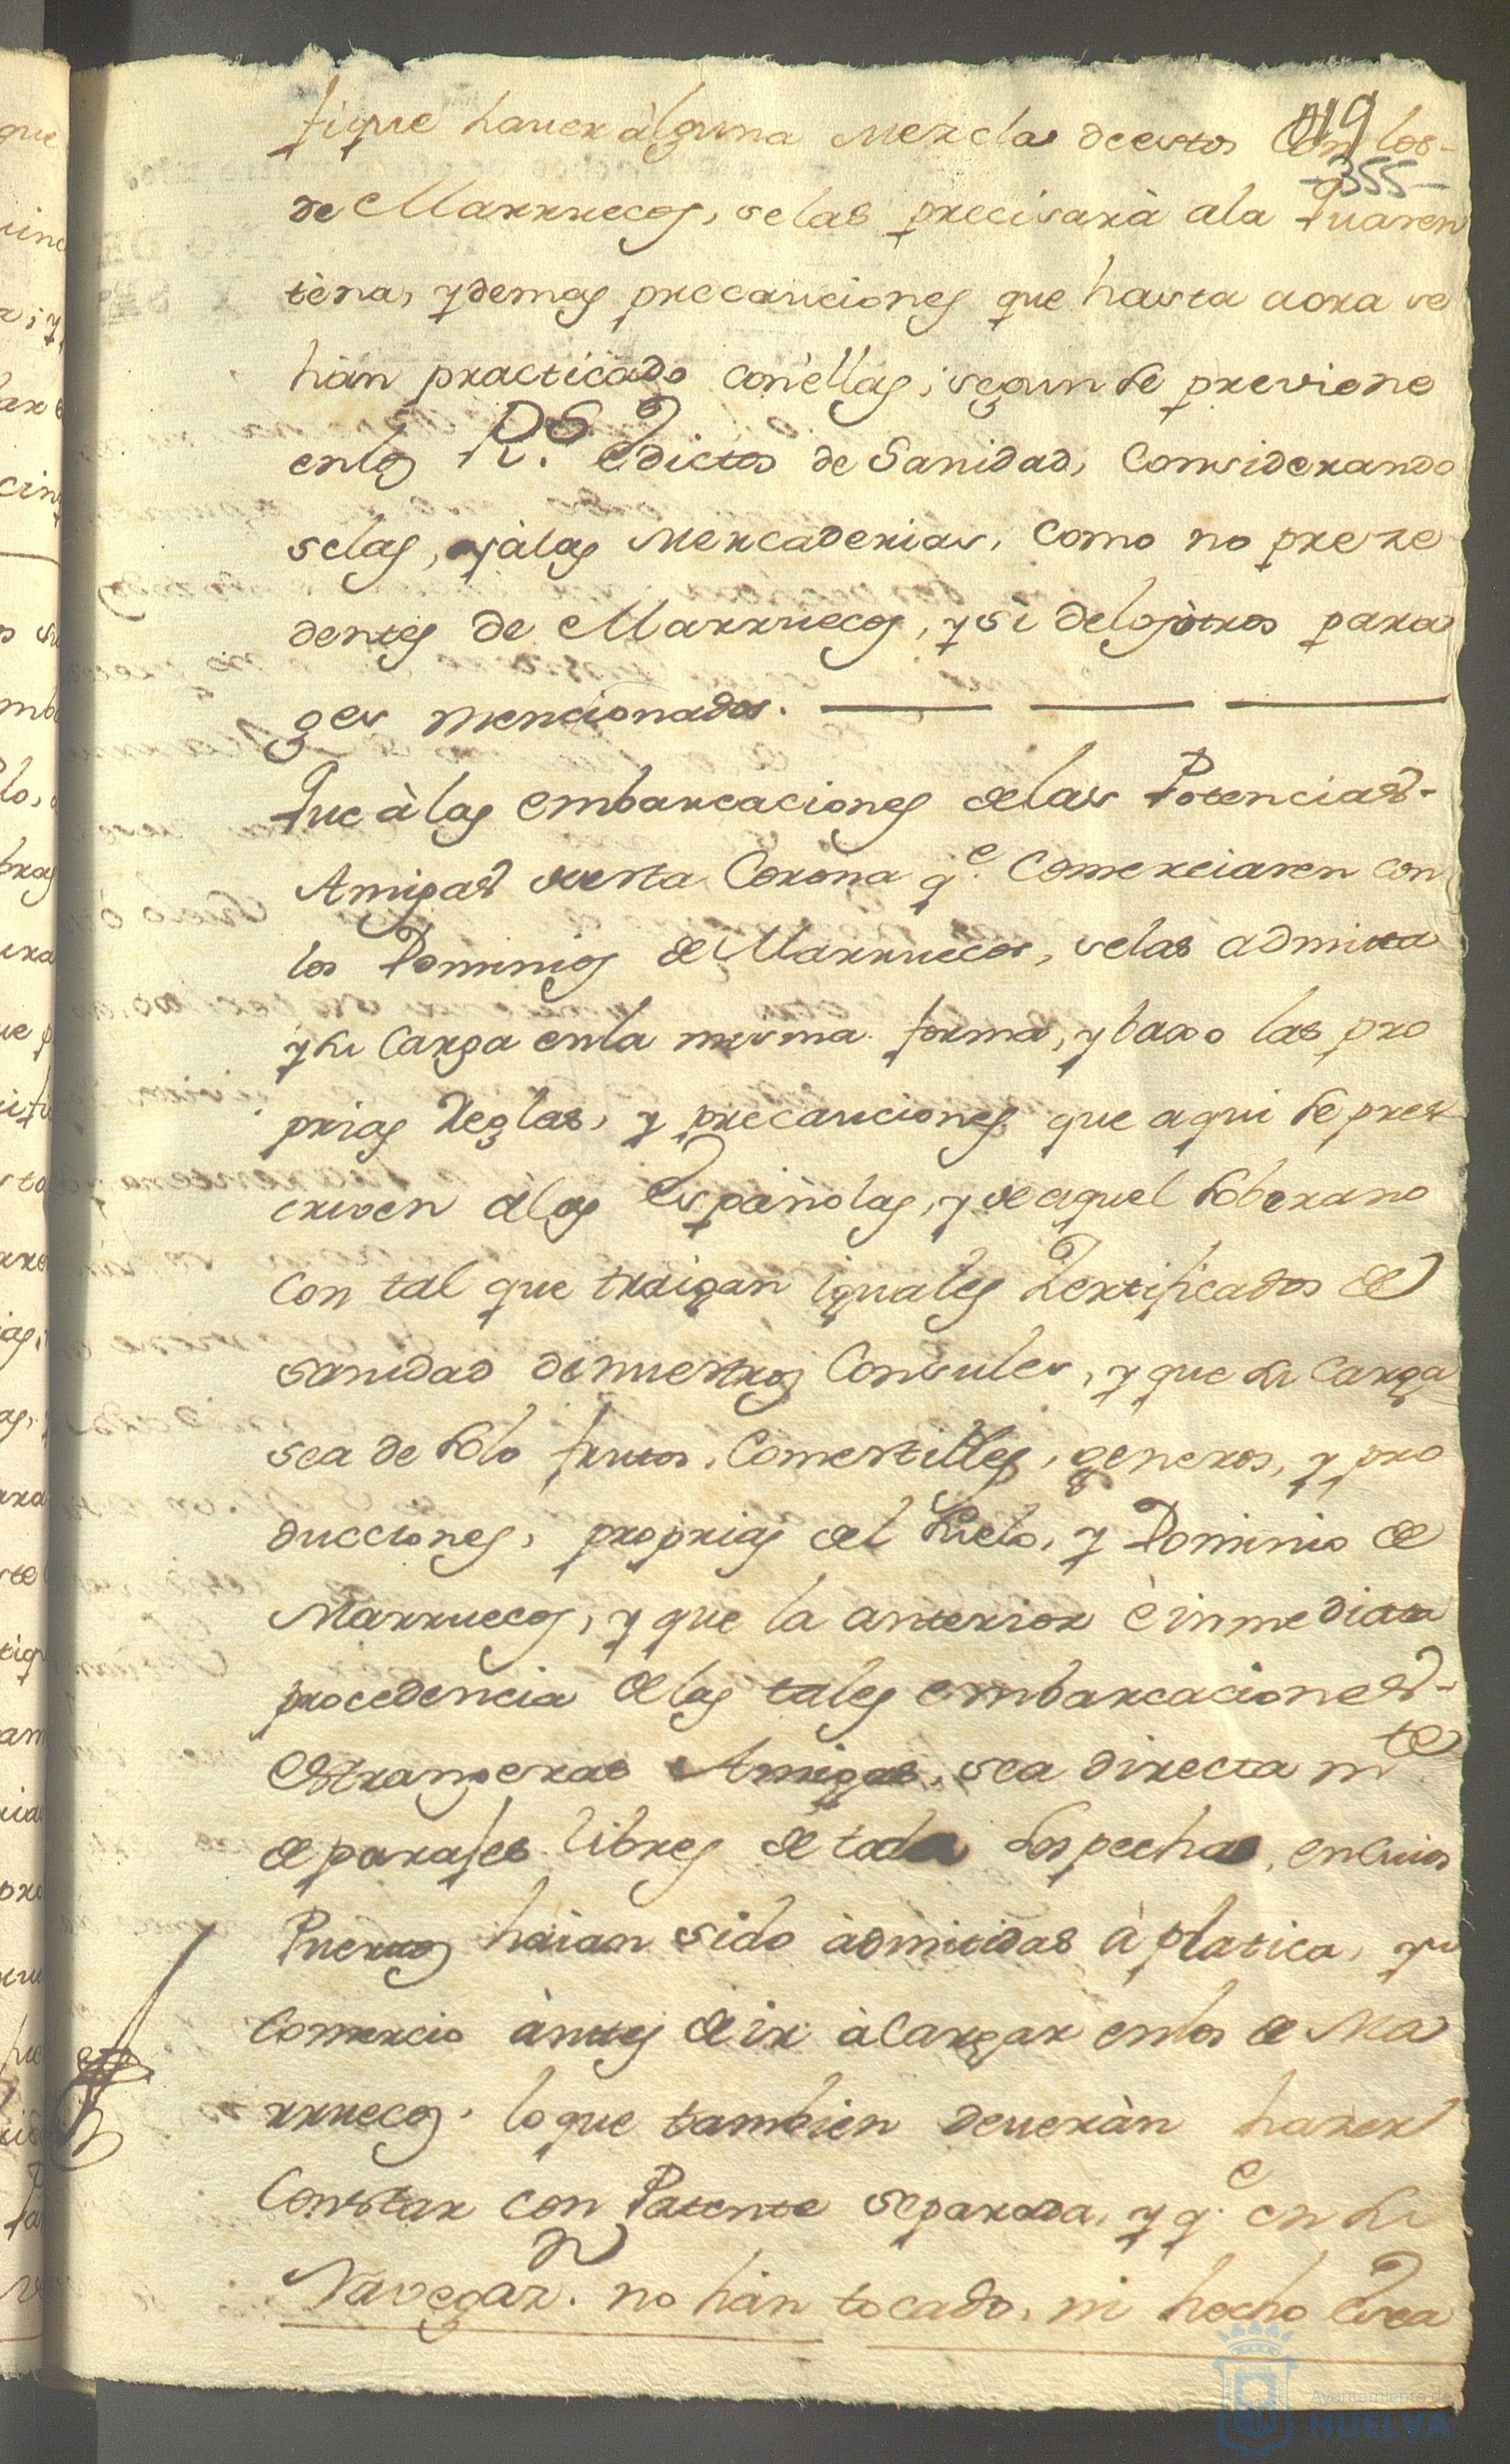 119
-355-
fique haver àlguna mezcla deestos con los-
de Marruecos, selas precisarà ala Quaren
tena, y demas precauciones que hasta aora se
hàn practicado con èllas; segun se previene
enlos Rs. edictos de Sanidad, Considerando
selas, y àlas Mercaderias, como no proze
dentes de Marruecos, y si delos òtros para
ges mencionados.
Que à las embarcaciones delas Potencias-
Amigas desta Corona qe. Comerciaren con
los Dominios de Marruecos, selas admita
y su Carga enla misma forma, y baxo las pro
prias Reglas, y precauciones que aqui se pres
criven alas Españolas, y de aquel soberano
con tal que traigan iguales Zertificados de
sanidad de nuestros Consules, y que su Carga
sea de solo frutos, Comestibles, generos, y pro
ducciones, proprias del suelo, y Dominio de
Marruecos, y que la anterior è inmediata
procedencia delas tales embarcaciones-
Estrangeras Amigas, sea directa mte.
de parajes libres de toda sospecha, en cuios
Puertos hàian sido àdmitidas à platica, y
comercio àntes de ir à Cargar enlos de Ma
rruecos. lo que tambien deveràn hazer
Constar con Patente separada, y qe. en su
Navegazn. no hàn tocado, ni hecho Esca
Ayuntamiento de
HUELVA